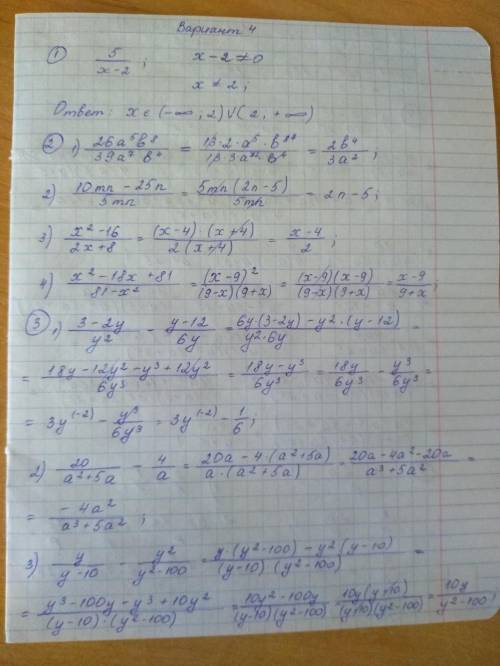 Вариант 4
① 5/(x-2) ; x-2≠0
x≠2;
Ответ: x∈(-∞, 2)∪(2, +∞)
② 1) 26a⁵b⁸/39a⁷b⁴ = 13·2·a⁵·b⁸/13·3a⁷·b⁴ = 2b⁴/3a²;
2) (10mn-25n)/5mn = 5mn(2n-5)/5mn = 2n-5;
3) (x²-16)/(2x+8) = (x-4)·(x+4)/2(x+4) = (x-4)/2;
4) (x²-18x+81)/(81-x²) = (x-9)²/(9-x)(9+x) = (x-9)(x-9)/(9-x)(9+x) = (x-9)/(9+x);
③ 1) (3-2y)/y² - (y-12)/6y = (6y·(3-2y)-y²·(y-12))/y²·6y =
= (18y-12y²-y³+12y²)/6y³ = (18y-y³)/6y³ = 18y/6y³ - y³/6y³ =
= 3y⁽⁻²⁾ - y³/6y³ = 3y⁽⁻²⁾ - 1/6;
2) 20/(a²+5a) - 4/a = (20a-4·(a²+5a))/a·(a²+5a) = (20a-4a²-20a)/(a³+5a²) =
= -4a²/(a³+5a²);
3) y/(y-10) - y²/(y²-100) = (y·(y²-100)-y²(y-10))/(y-10)(y²-100) =
= (y³-100y-y³+10y²)/(y-10)·(y²-100) = (10y²-100y)/(y-10)(y²-100) = 10y(y-10)/(y-10)(y²-100) = 10y/(y²-100);